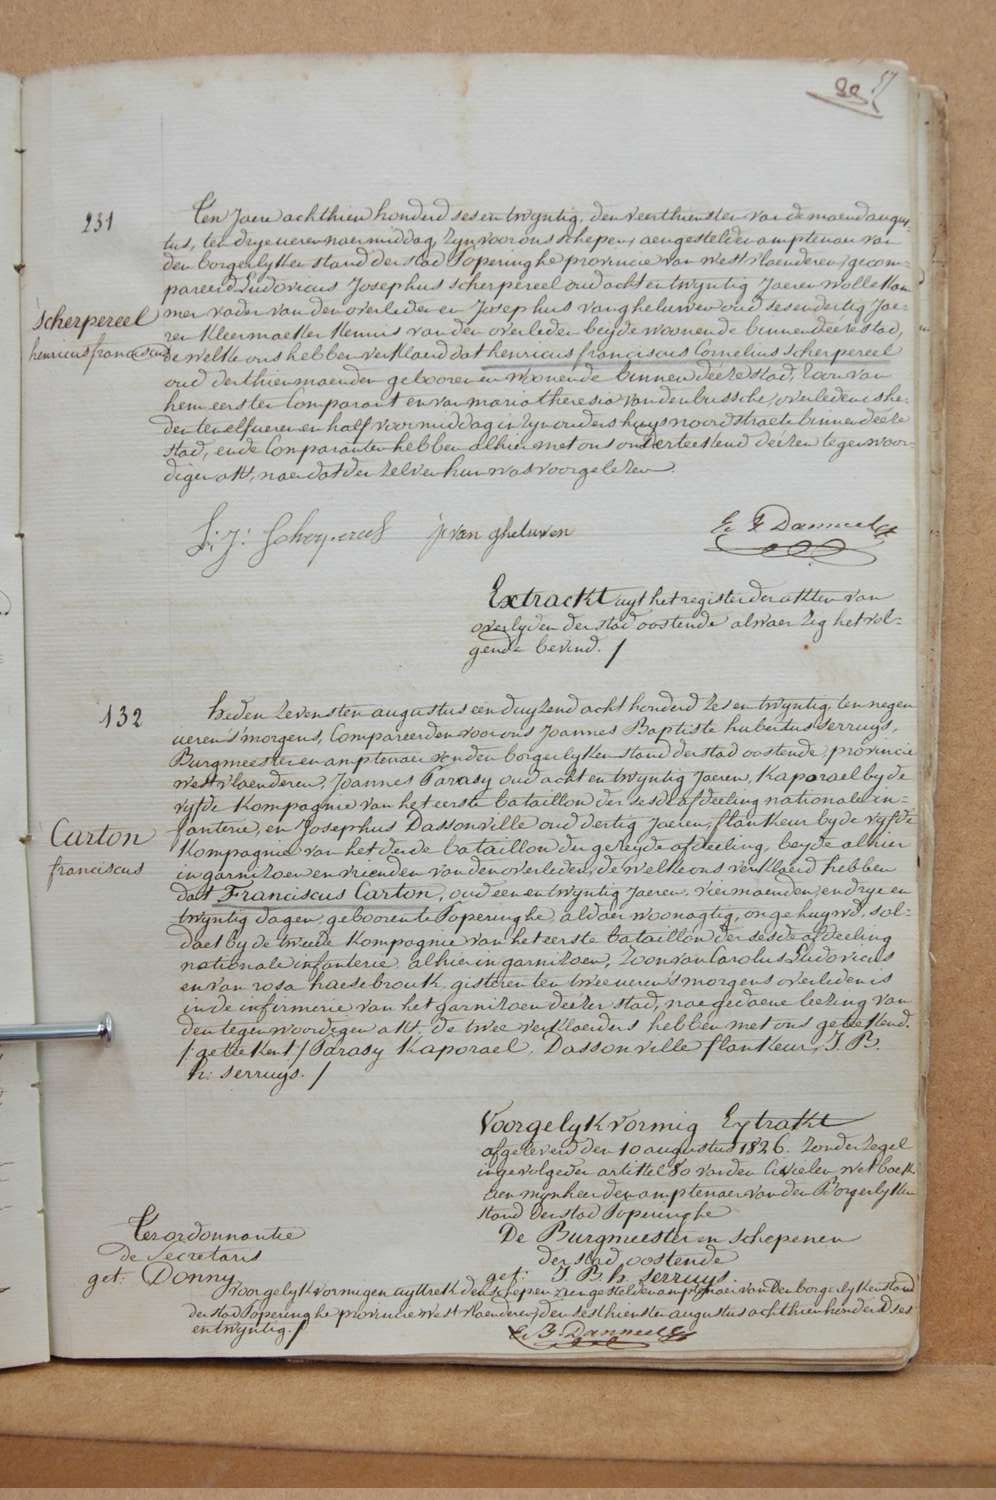 88 57
231
Scherpereel
henricus franciscus
Ten Jaere achthien honderd ses en twyntig, den veerthiensten van de maend augus-
tus, ten drye ueren naer middag, zyn voor ons schepen, aengestelden amptenaer van
den borgerlyken stand der stad Poperinghe provincie van west vlaenderen, gecom-
pareerd Ludovicus Josephus scherpereel oud acht en twyntig Jaeren wolle kam
mer vader van den overleden en Josephus van gheluwen oud ses en dertig Jae-
ren kleermaeker kennis van den overleden beyde woonende binnen deeze stad,
de welke ons hebben verklaerd dat henricus franciscus Cornelius scherpereel
oud derthien maenden gebooren en woonende binnen deeze stad, zoon van
hem eersten Comparant en van maria theresia vandenbussche, overleden is he-
den ten elf ueren en half voormiddag in zyn ouders huys noordstraete binnen deeze
stad, en de Comparanten hebben alhier met ons onderteekend deezen tegenwoor-
digen akt, naer dat den zelven hun was voorgelezen
L: J: Scherpereel j van gheluwen E. F Danneel
Extrackt uyt het register der akten van
overlyden der stad oostende alwaer zeg het vol=
gende bevind. /
132
Carton
franciscus
heden zevensten augustus een duyzend acht honderd zes en twyntig, ten negen
ueren 's morgens, Compareerden voor ons Joannes Baptiste hubertus serruys,
Burgmeester en amptenaer van den borgerlyken stand der stad oostende, provincie
west vlaenderen, Joannes Parasy oud acht en twyntig Jaeren, Kaporael by de
vyfde Kompagnie van het eerste bataillon der sesde afdeeling nationale in=
fanterie, en Josephus Dassonville oud dertig Jaeren, flankeur by de vyfde
Kompagnie van het derde bataillon der gezeyde afdeeling, beyde alhier
in garnizoen en vrienden van den overleden, de welke ons verklaerd hebben
dat Franciscus Carton, oud een en twyntig Jaeren, vier maenden, en drye en
twyntig dagen, gebooren te Poperinghe aldaer woonagtig, ongehuywd, sol=
daet by de tweede Kompagnie van het eerste bataillon der sesde afdeeling
nationale infanterie, alhier in garnizoen, zoon van Carolus Ludovicus
en van rosa haesebrouk, gisteren ten twee ueren 's morgens overleden is
in de infirmerie van het garnizoen deezer stad, nae gedaene leezing van
den tegenwoordigen akt, de twee verklaerders hebben met ons geteekend.
/: geteekent / Parasy Kaporael, Dassonville flankeur, J. B.
h: serruys. /
Voorgelykvormig Extrakt
afgeleverd den 10 augustus 1826. zonder zegel
ingevolge den artikel 80 van den Civielen wetboek
aen mynheer den amptenaer van den Borgerlyken
stand der stad Poperinghe
Ter ordonnantie
de Secretaris
get: Donny
De Burgmeester en schepenen
der stad oostende
get: J B. h. serruys.
voor gelykvormigen uyttrek den schepen aengestelden amptenaer van den borgerlyken stand
der stad Poperinghe provincie west vlaenderen, den sesthiensten augustus achthien honderd ses
en twyntig. /
E. F. Danneel